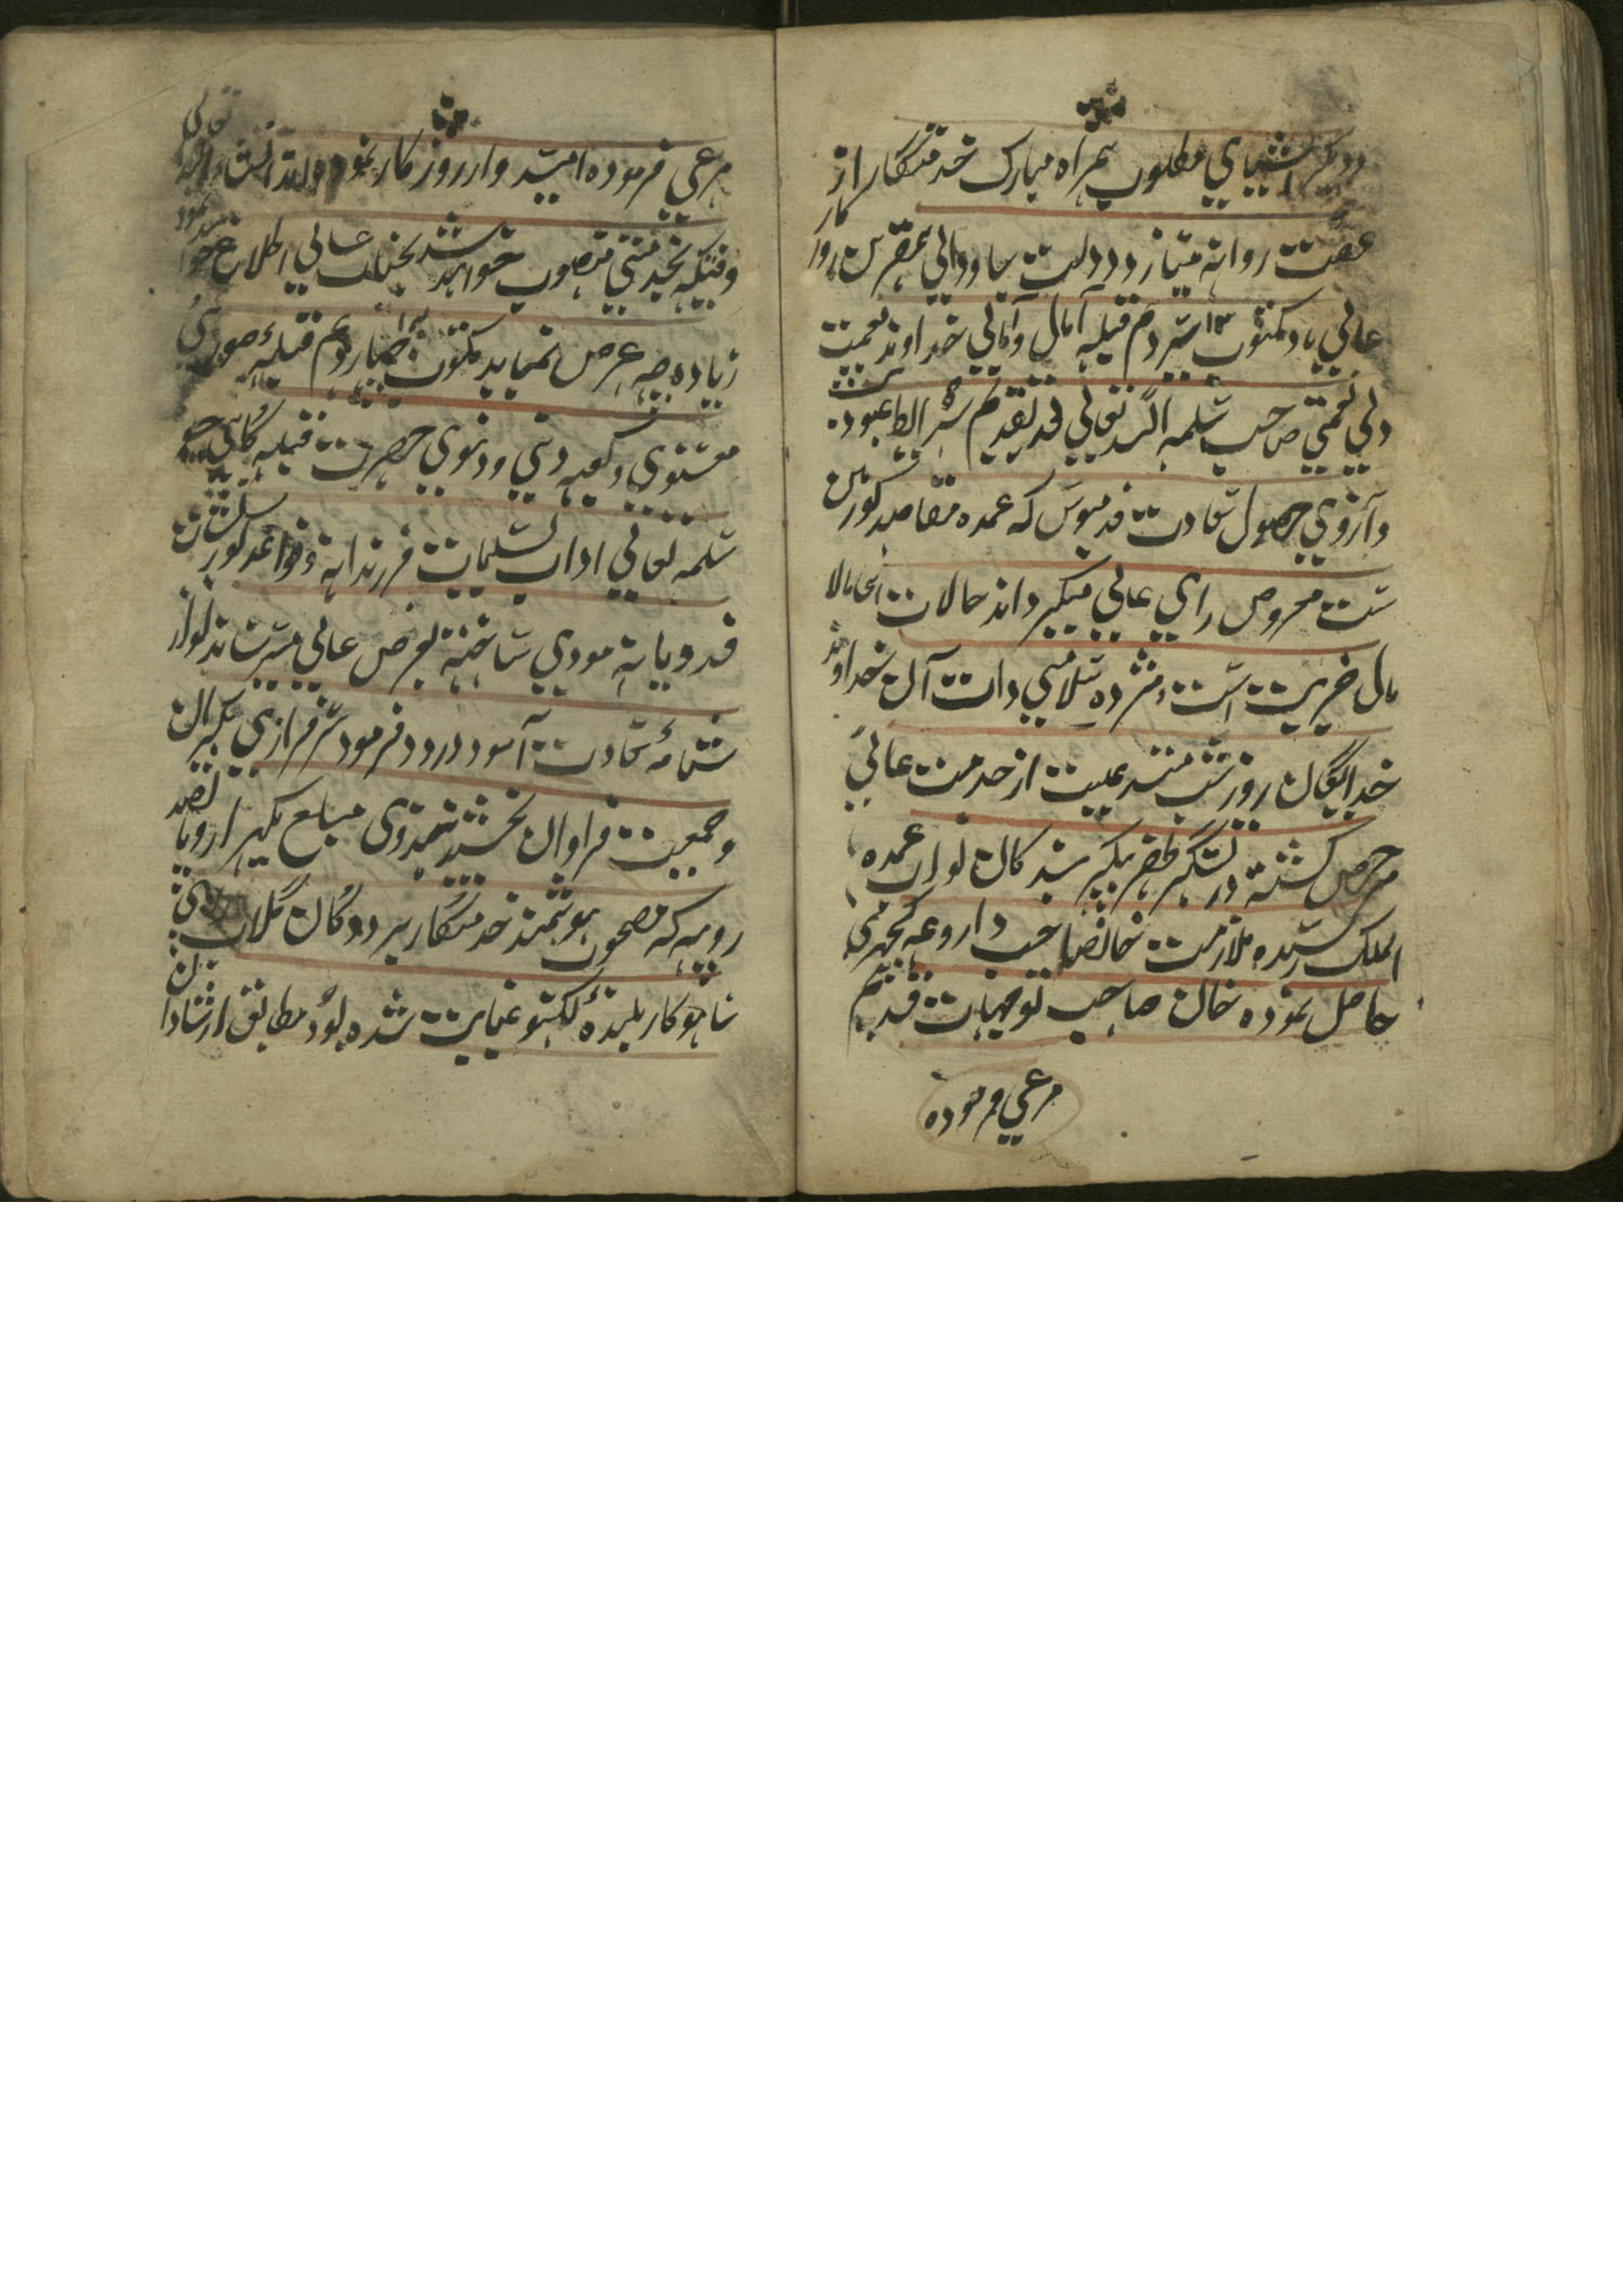 ودیگر اشیای مطلوب همراه مبارک خدمتگار از
عقبت روانه میسازد دولت جاودانی
عالی باد مکتوب ۱۳ سیزدهم قبله آمال و امانی خداوند نعمت
ولی نعمتی صاحب سلمه الله تعالی بعد تقدیم شرایط عبودیت
وآرزوی حصول سعادت قدمبوسی که عمده مقاصد کونین
ست معروض رای عالی میگرداند حالات
مال خیریت است ومژده سلامتی ذات آن خداوند
خدایگان روز شب مستدعیست از خدمت عالی
مرخص گشته در لشکر ظفر پیکر بندگان نواب عمده
الملک رسیده ملازمت خانصاحب داروغه
حاصل نموده خان صاحب توجهات قدیم
مرعی فرموده
مرعی فرموده امیدوار روزگار نموده اند انشاء الله تعالی
وقتیکه بخدمتی منصوب خواهد شد بجناب عالی اطلاع خواهد نمود
زیاده چه عرض نماید مکتوب چهاردهم قبله صوری
معنوی وکعبه دینی ودنیوی حضرت قبله گاهی جیو
سلمه تعالی اداب تسلیمات فرزندانه وقواعد کورنشات
فدویانه مودی ساخته بعرض عالی میرساند نوازش
نامه سعادت آمود ورود فرمود سرفرازی بیکران
وجمعیت فراوان بخشید مبلغ یکهزار وپانصد
روپیه که مصحوب هوشمند خدمتگار بر دوکان گلاب رای
ساهوکار بلده لکهنو عنایت شده بود مطابق ارشاد آن